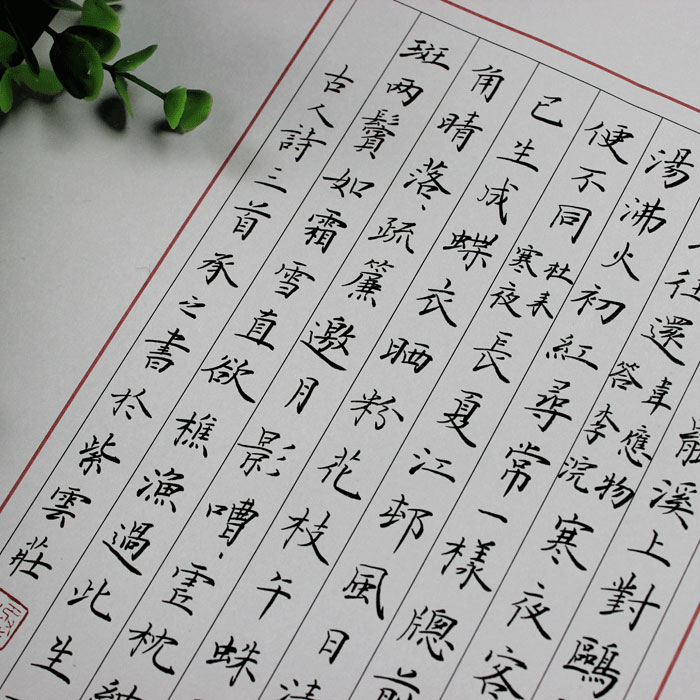 溪上對鷗
往還韋應物答李浣寒夜客
湯沸火初紅尋常一樣牕前
便不同杜耒寒夜長夏江邨風日清
已生成蝶衣晒粉花枝午蛛
角晴落〻疏簾邀月影嘈〻虚枕納
斑两鬢如霜雪直欲樵漁過此生
古人詩三首承之書於紫雲莊